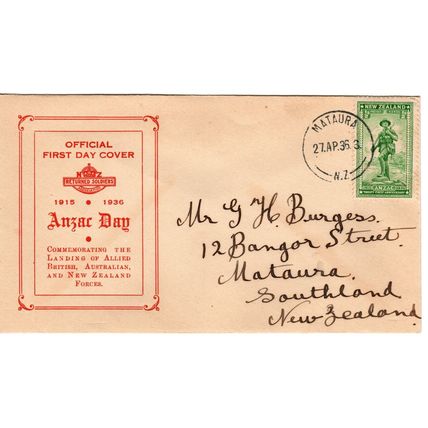 OFFICIAL
FIRST DAY COVER
NZ
RETURNED SOLDIERS
ASSOCIATION
1915 • 1936
Anzac Day
COMMEMORATING THE
LANDING OF ALLIED
BRITISH, AUSTRALIAN,
AND NEW ZEALAND
FORCES.
MATAURA
27.AP.36.3
N.Z.
NEW ZEALAND
ANZAC
Mr G H. Burgess.
12 Bangor Street.
Mataura.
Southland
New Zealand.